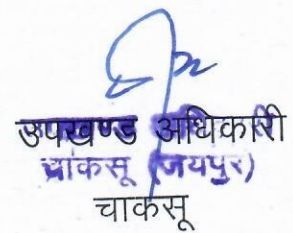 उपखण्ड अधिकारी
चाकसू (जयपुर)
चाकसू